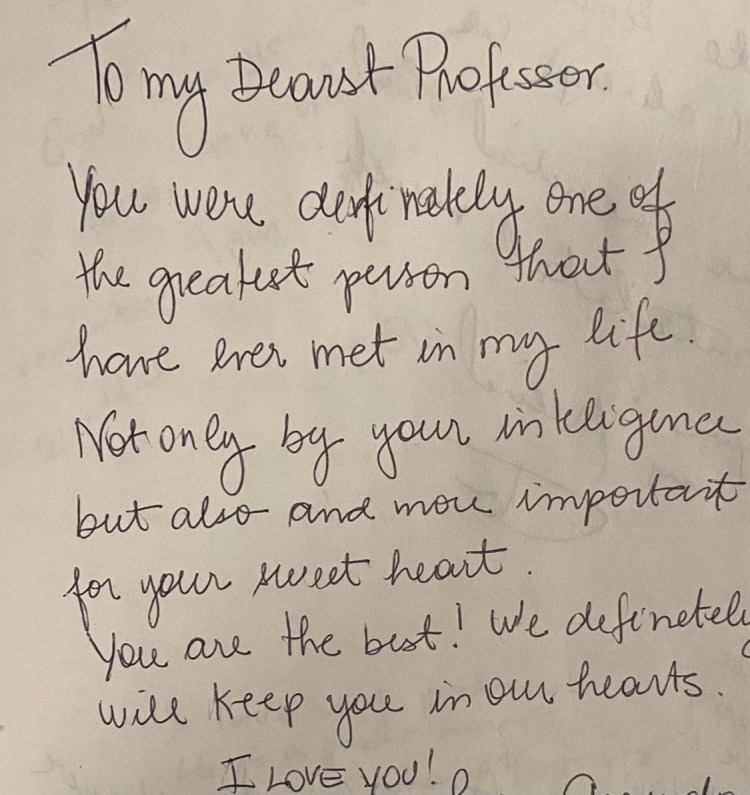 To my Dearst Professor.
You were definately one of
the greatest person that I
have ever met in my life.
Not only by your inteligence
but also and more important
for your sweet heart.
You are the best! We definetely
will keep you in our hearts.
I LOVE YOU!